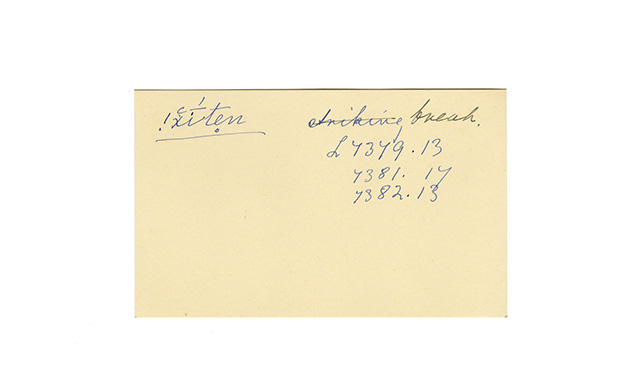 !χítẹn striking break.
L 7379.13
7381. 17
7382.13